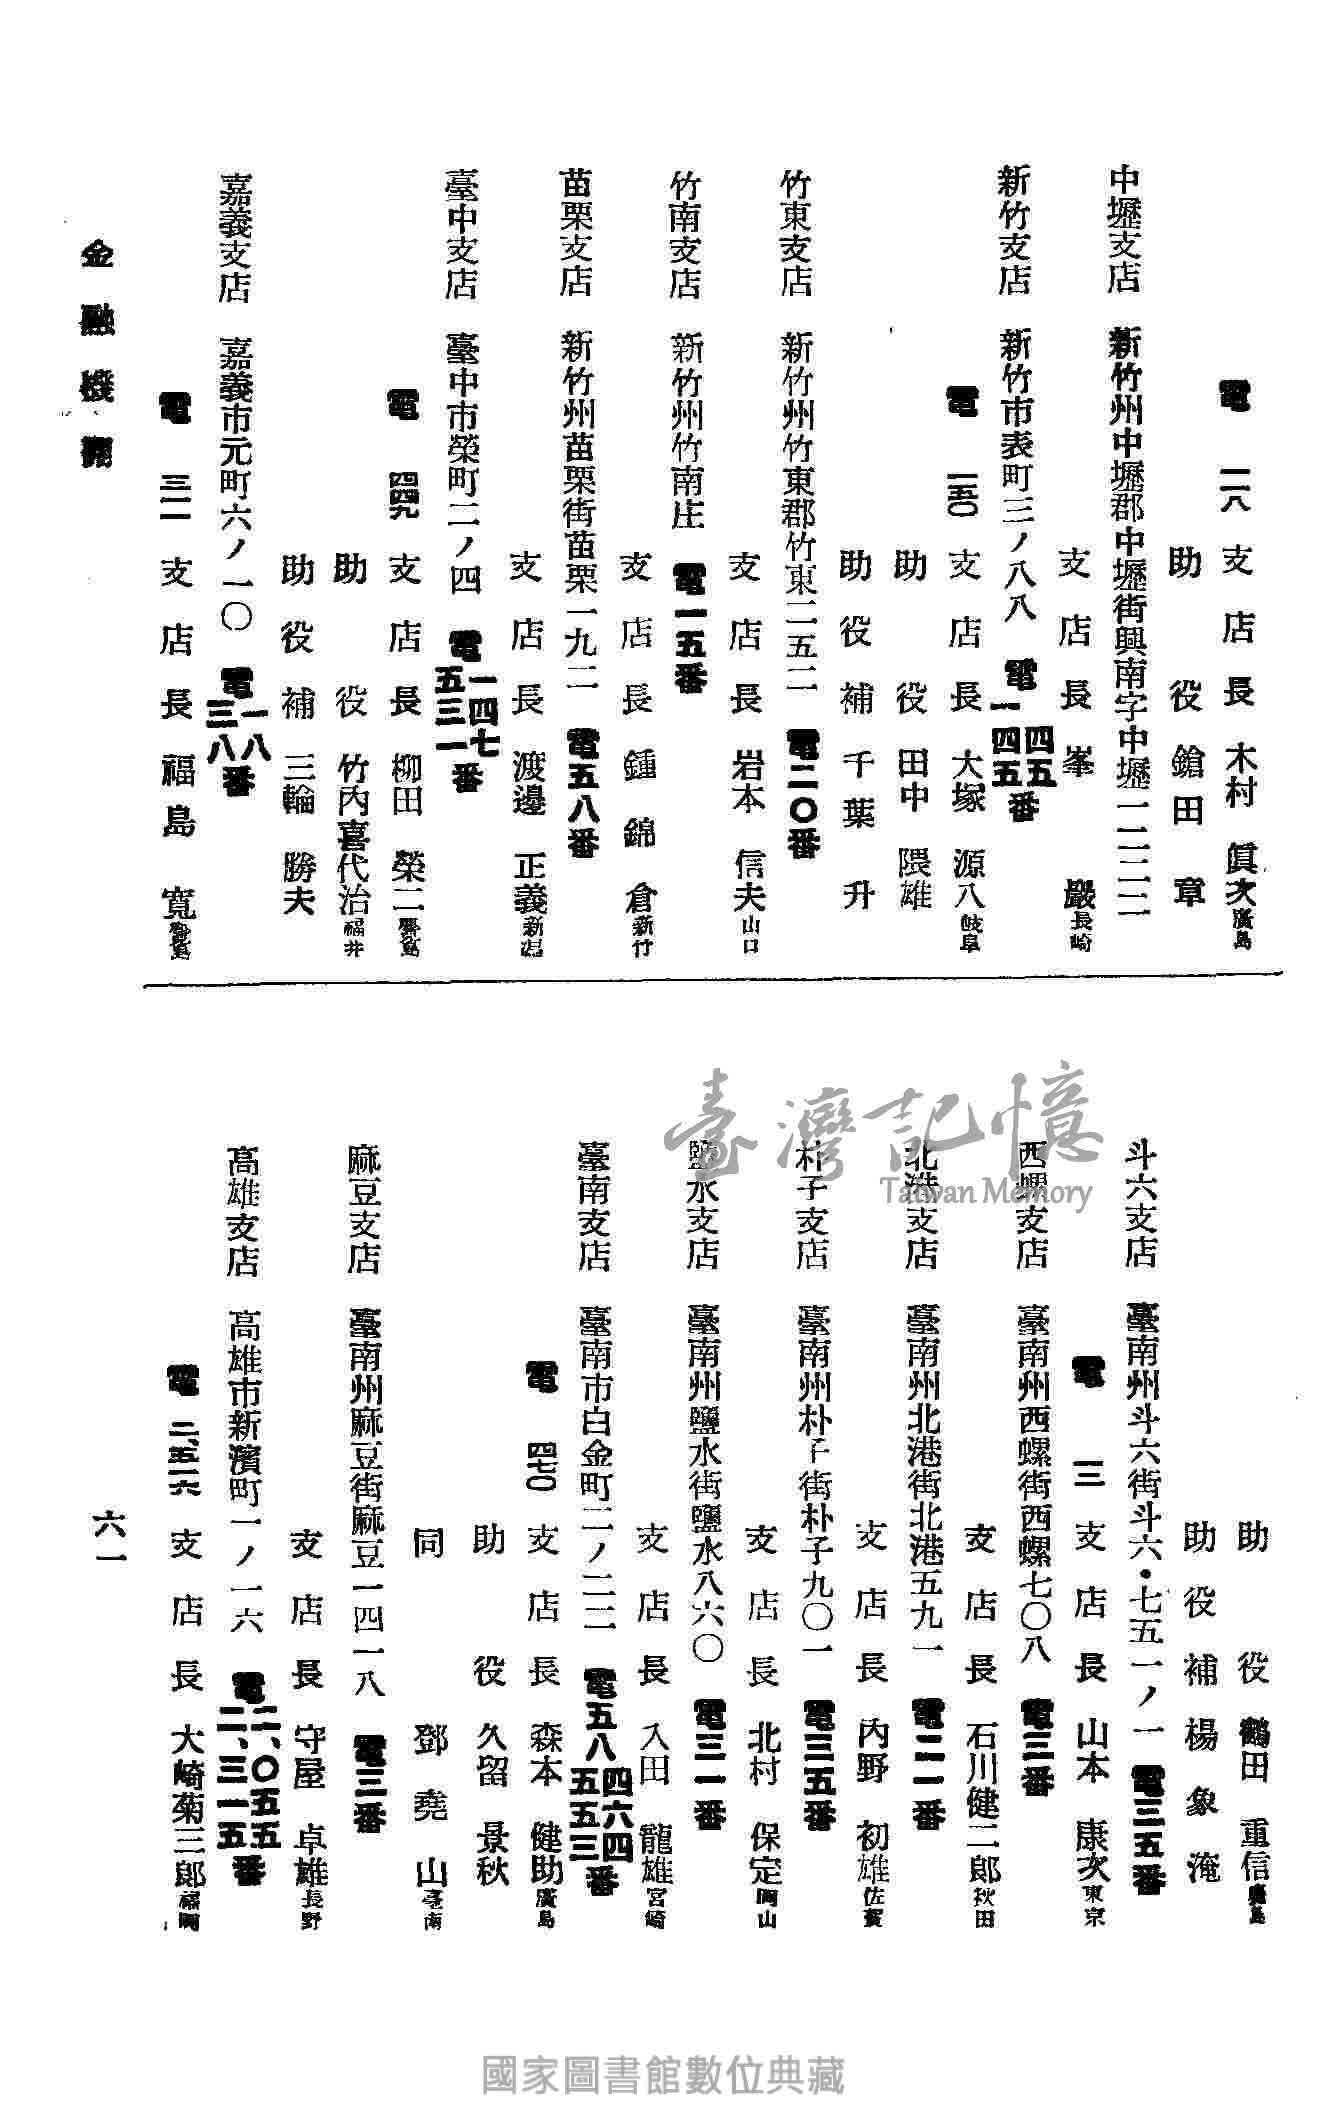 電 一二八 支店長 木村 眞次 廣島
助役 鎗田 章
中壢支店 新竹州中壢郡中壢街興南字中壢一二二二
支店長 峯 巖 長崎
新竹支店 新竹市表町三ノ八八 電一四四五五番
電 一五〇 支店長 大塚 源八 岐阜
助役 田中 隈雄
助役補 千葉 升
竹東支店 新竹州竹東郡竹東二五二 電二〇番
支店長 岩本 信夫 山口
竹南支店 新竹州竹南庄 電一五番
支店長 鍾錦倉 新竹
苗栗支店 新竹州苗栗街苗栗一九二 電五八番
支店長 渡邊 正義 新潟
臺中支店 臺中市榮町二ノ四 電一四七 五三一番
電 四四九 支店長 柳田 榮二
助役 竹內喜代治 福井
助役補 三輪 勝夫
嘉義支店 嘉義市元町六ノ一〇 電一八 三八番
電 三二一 支店長 福島 寬
金融機關
助役 鶴田 重信
助役補 楊象淹
斗六支店 臺南州斗六街斗六・七五一ノ一 電三五番
電 三 支店長 山本 康次 東京
西螺支店 臺南州西螺街西螺七〇八 電三番
支店長 石川健二郎 秋田
北港支店 臺南州北港街北港五九一 電二一番
支店長 內野 初雄 佐賀
朴子支店 臺南州朴子街朴子九〇一 電三五番
支店長 北村 保定 岡山
鹽水支店 臺南州鹽水街鹽水八六〇 電三一番
支店長 入田 龍雄 宮崎
臺南支店 臺南市白金町二ノ二二 電五八 四六四 五五三番
電 四七〇 支店長 森本 健助 廣島
助役 久留 景秋
同 鄧堯山 臺南
麻豆支店 臺南州麻豆街麻豆一四一八 電三番
支店長 守屋 卓雄 長野
高雄支店 高雄市新濱町一ノ一六 電二、〇五五 二、三一五番
電 二、五一六 支店長 大崎菊三郎 福岡
六一
臺灣記憶
Taiwan Memory
國家圖書館數位典藏